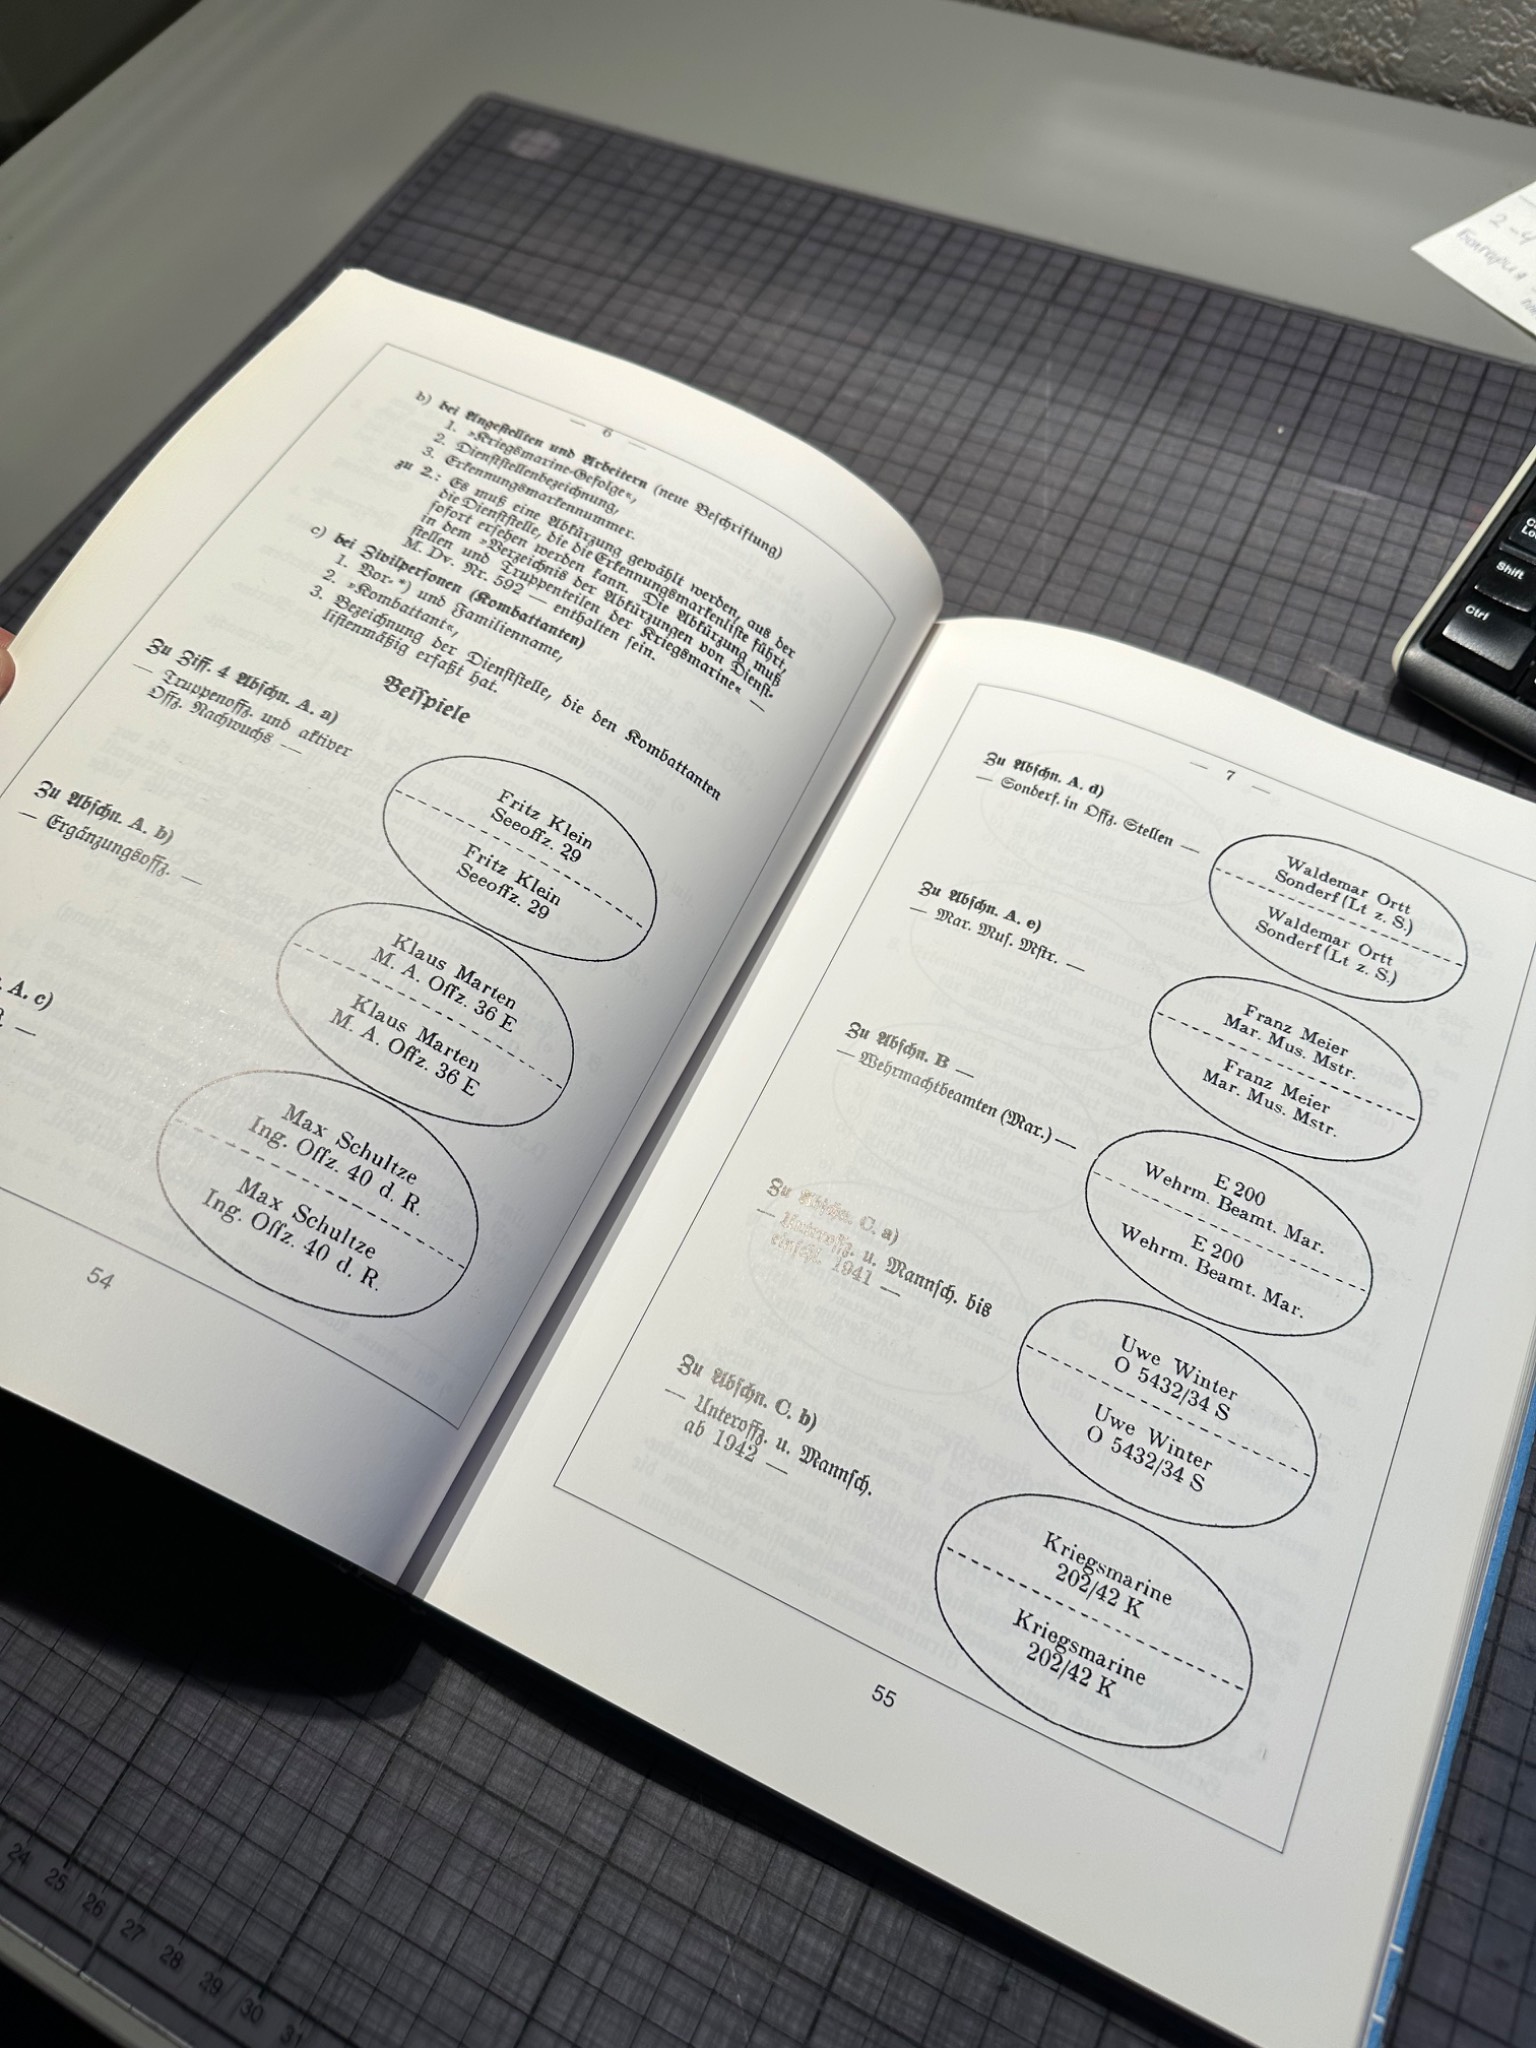 — 6 —
b) bei Angestellten und Arbeitern (neue Beschriftung)
1. »Kriegsmarine-Gefolge«,
2. Dienststellenbezeichnung,
3. Erkennungsmarkennummer.
zu 2.: Es muß eine Abkürzung gewählt werden, aus der
die Dienststelle, die die Erkennungsmarkenliste führt,
sofort ersehen werden kann. Die Abkürzung muß
in dem »Verzeichnis der Abkürzungen von Dienst-
stellen und Truppenteilen der Kriegsmarine« —
M. Dv. Nr. 592 — enthalten sein.
c) bei Zivilpersonen (Kombattanten)
1. Vor- *) und Familienname,
2. »Kombattant«,
3. Bezeichnung der Dienststelle, die den Kombattanten
listenmäßig erfaßt hat.
Beispiele
Zu Ziff. 4 Abschn. A. a)
— Truppenoffz. und aktiver
Offz. Nachwuchs —
Fritz Klein
Seeoffz. 29
Fritz Klein
Seeoffz. 29
Zu Abschn. A. b)
— Ergänzungsoffz. —
Klaus Marten
M. A. Offz. 36 E
Klaus Marten
M. A. Offz. 36 E
A. c)
Max Schultze
Ing. Offz. 40 d. R.
Max Schultze
Ing. Offz. 40 d. R.
54
— 7 —
Zu Abschn. A. d)
— Sonderf. in Offz. Stellen —
Waldemar Ortt
Sonderf (Lt z. S.)
Waldemar Ortt
Sonderf (Lt z. S.)
Zu Abschn. A. e)
— Mar. Mus. Mstr. —
Franz Meier
Mar. Mus. Mstr.
Franz Meier
Mar. Mus. Mstr.
Zu Abschn. B —
— Wehrmachtbeamten (Mar.) —
E 200
Wehrm. Beamt. Mar.
E 200
Wehrm. Beamt. Mar.
Zu Abschn. C. a)
— Unteroffz. u. Mannsch. bis
einschl. 1941 —
Uwe Winter
O 5432/34 S
Uwe Winter
O 5432/34 S
Zu Abschn. C. b)
— Unteroffz. u. Mannsch.
ab 1942 —
Kriegsmarine
202/42 K
Kriegsmarine
202/42 K
55
Shift
Ctrl
2-4
24 25 26 27 28 29 30 31